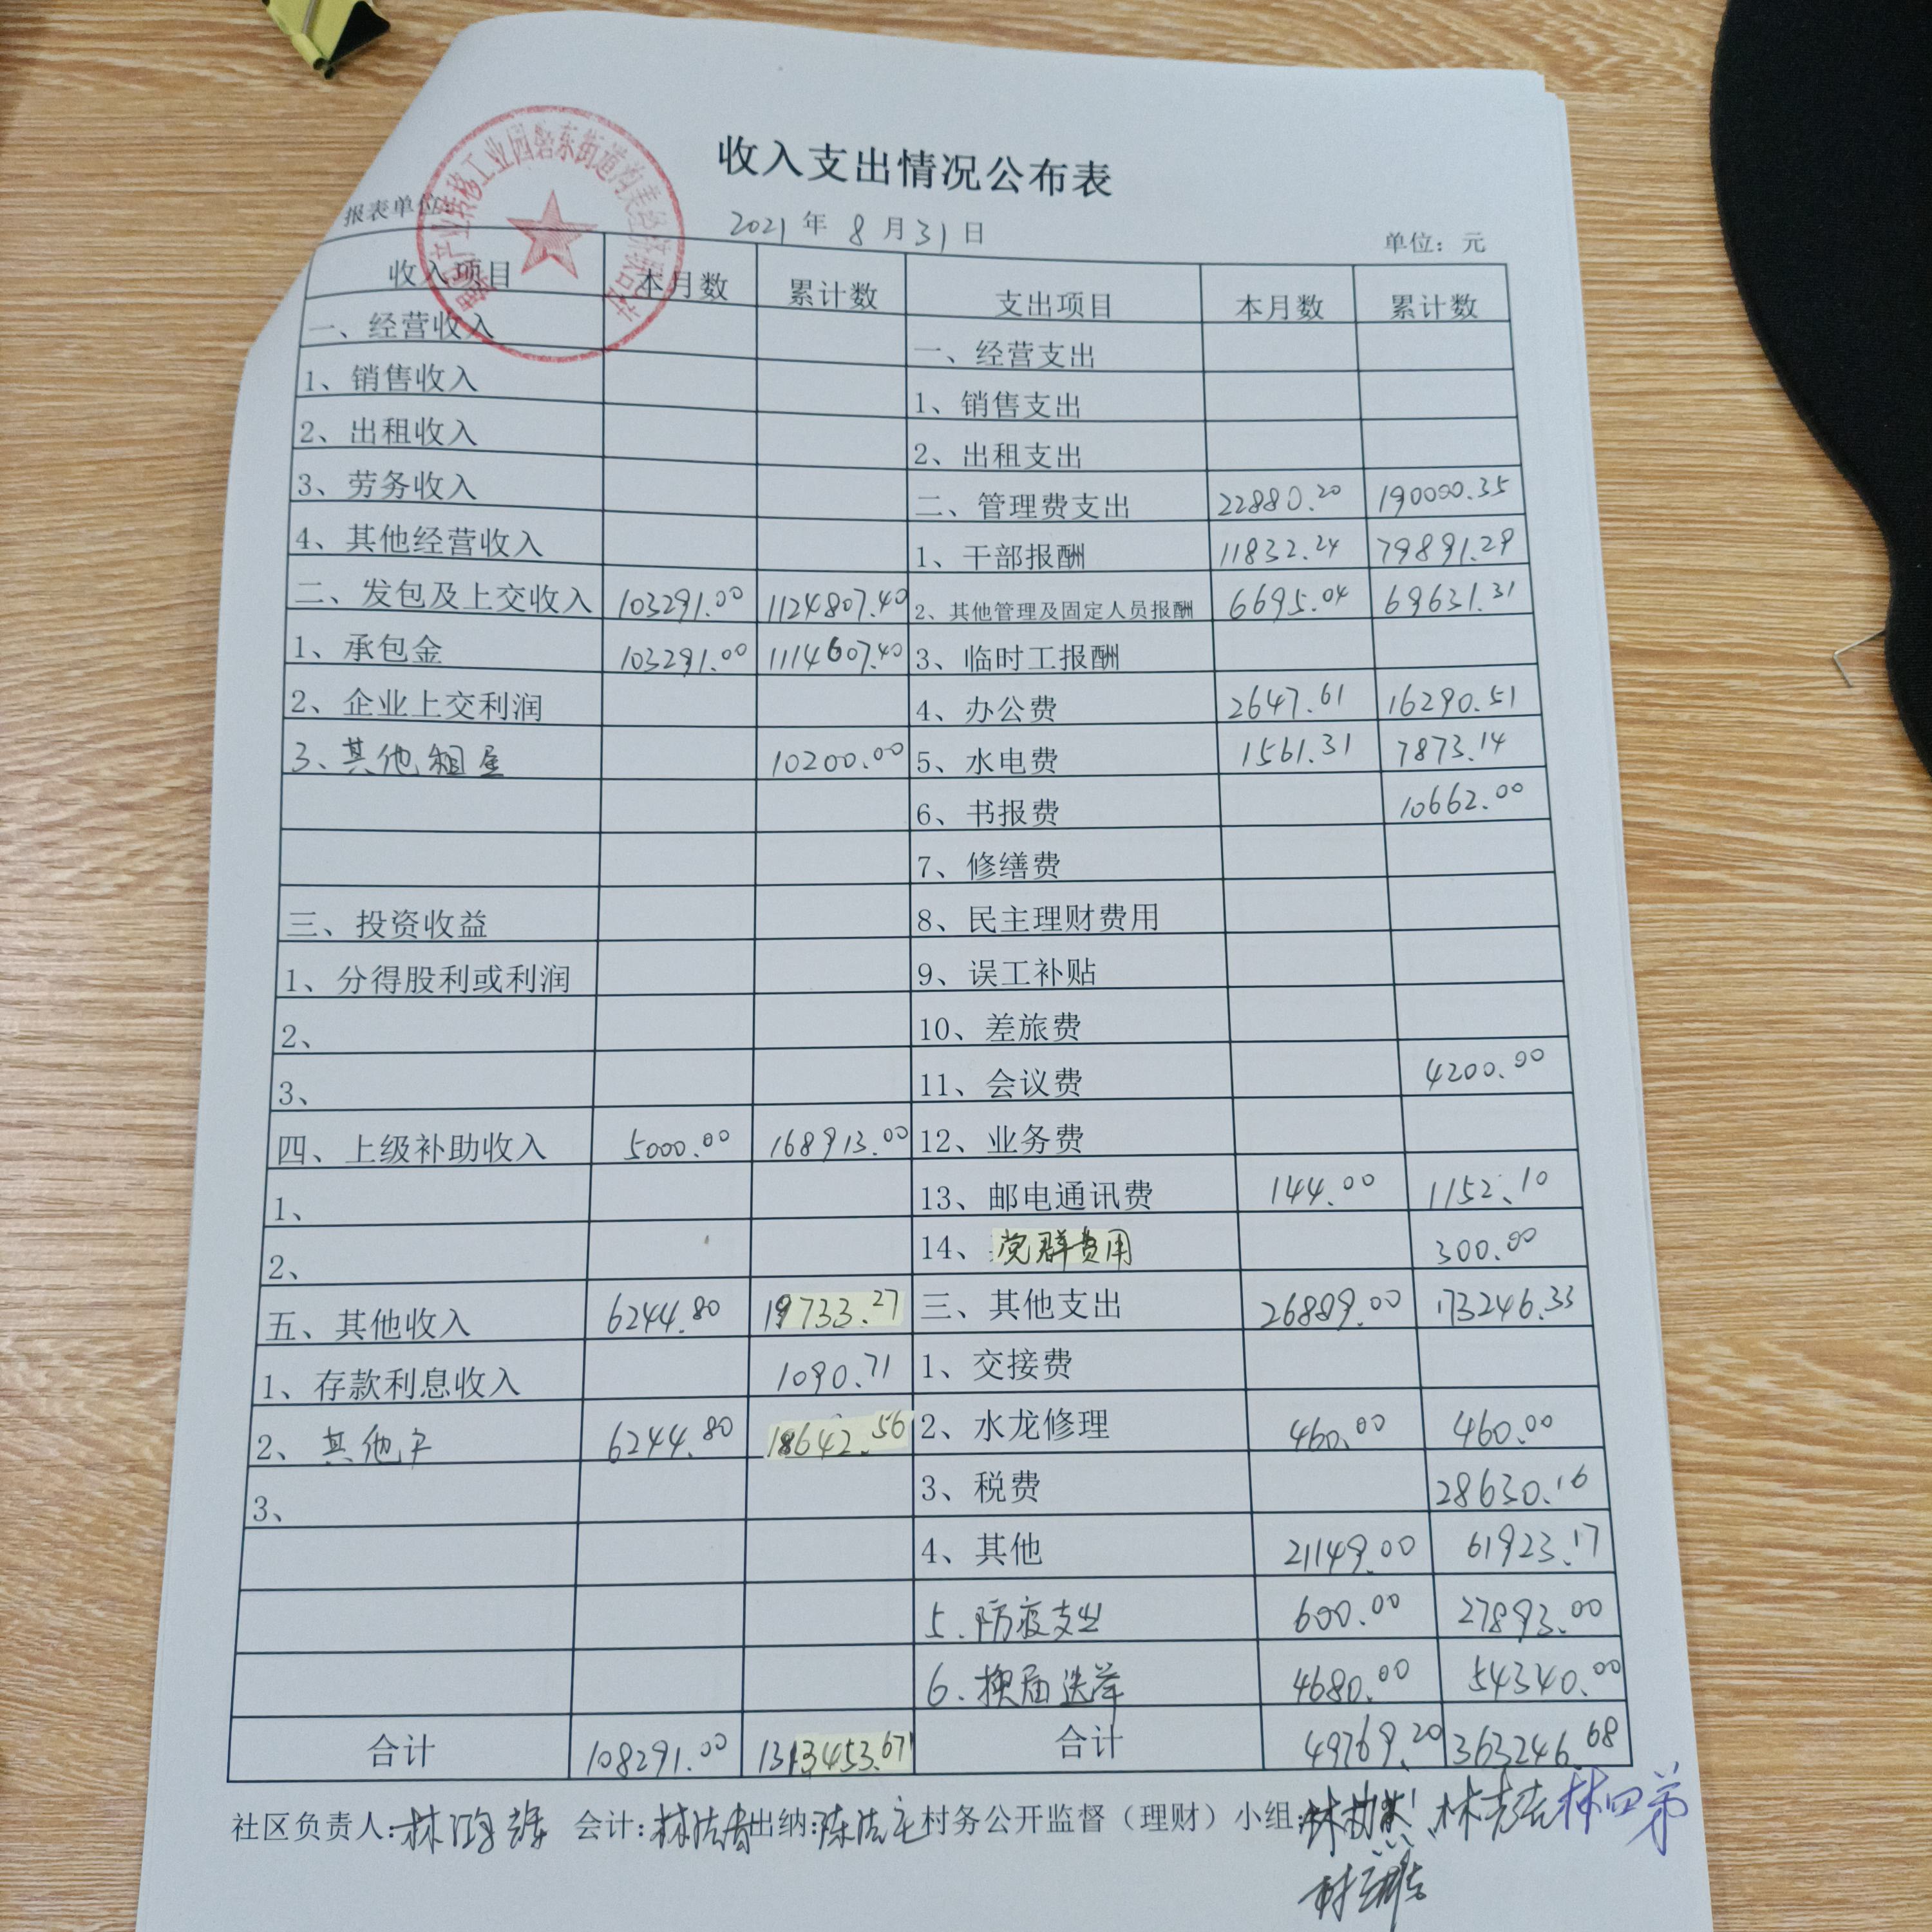 收入支出情况公布表
报表单位:
2021年8月31日
单位：元
收入项目 本月数 累计数 支出项目 本月数 累计数
一、经营收入 一、经营支出
1、销售收入 1、销售支出
2、出租收入 2、出租支出
3、劳务收入 二、管理费支出 22880.20 190000.35
4、其他经营收入 1、干部报酬 11832.24 79891.29
二、发包及上交收入 103291.00 1124807.40 2、其他管理及固定人员报酬 6695.04 69631.31
1、承包金 103291.00 1114607.40 3、临时工报酬
2、企业上交利润 4、办公费 2647.61 16290.51
3、其他租金 10200.00 5、水电费 1561.31 7873.14
6、书报费 10662.00
7、修缮费
三、投资收益 8、民主理财费用
1、分得股利或利润 9、误工补贴
2、 10、差旅费
3、 11、会议费 4200.00
四、上级补助收入 5000.00 168913.00 12、业务费
1、 13、邮电通讯费 144.00 1152.10
2、 14、党群费用 300.00
五、其他收入 6244.80 19733.27 三、其他支出 26889.00 173246.33
1、存款利息收入 1090.71 1、交接费
2、其他 6244.80 18642.56 2、水龙修理 460.00 460.00
3、 3、税费 28630.16
4、其他 21149.00 61923.17
5.防疫支出 600.00 27893.00
6.换届选举 4680.00 54340.00
合计 108291.00 1313453.67 合计 49769.20 363246.68
社区负责人: 会计: 出纳: 村务公开监督（理财）小组: 林四弟